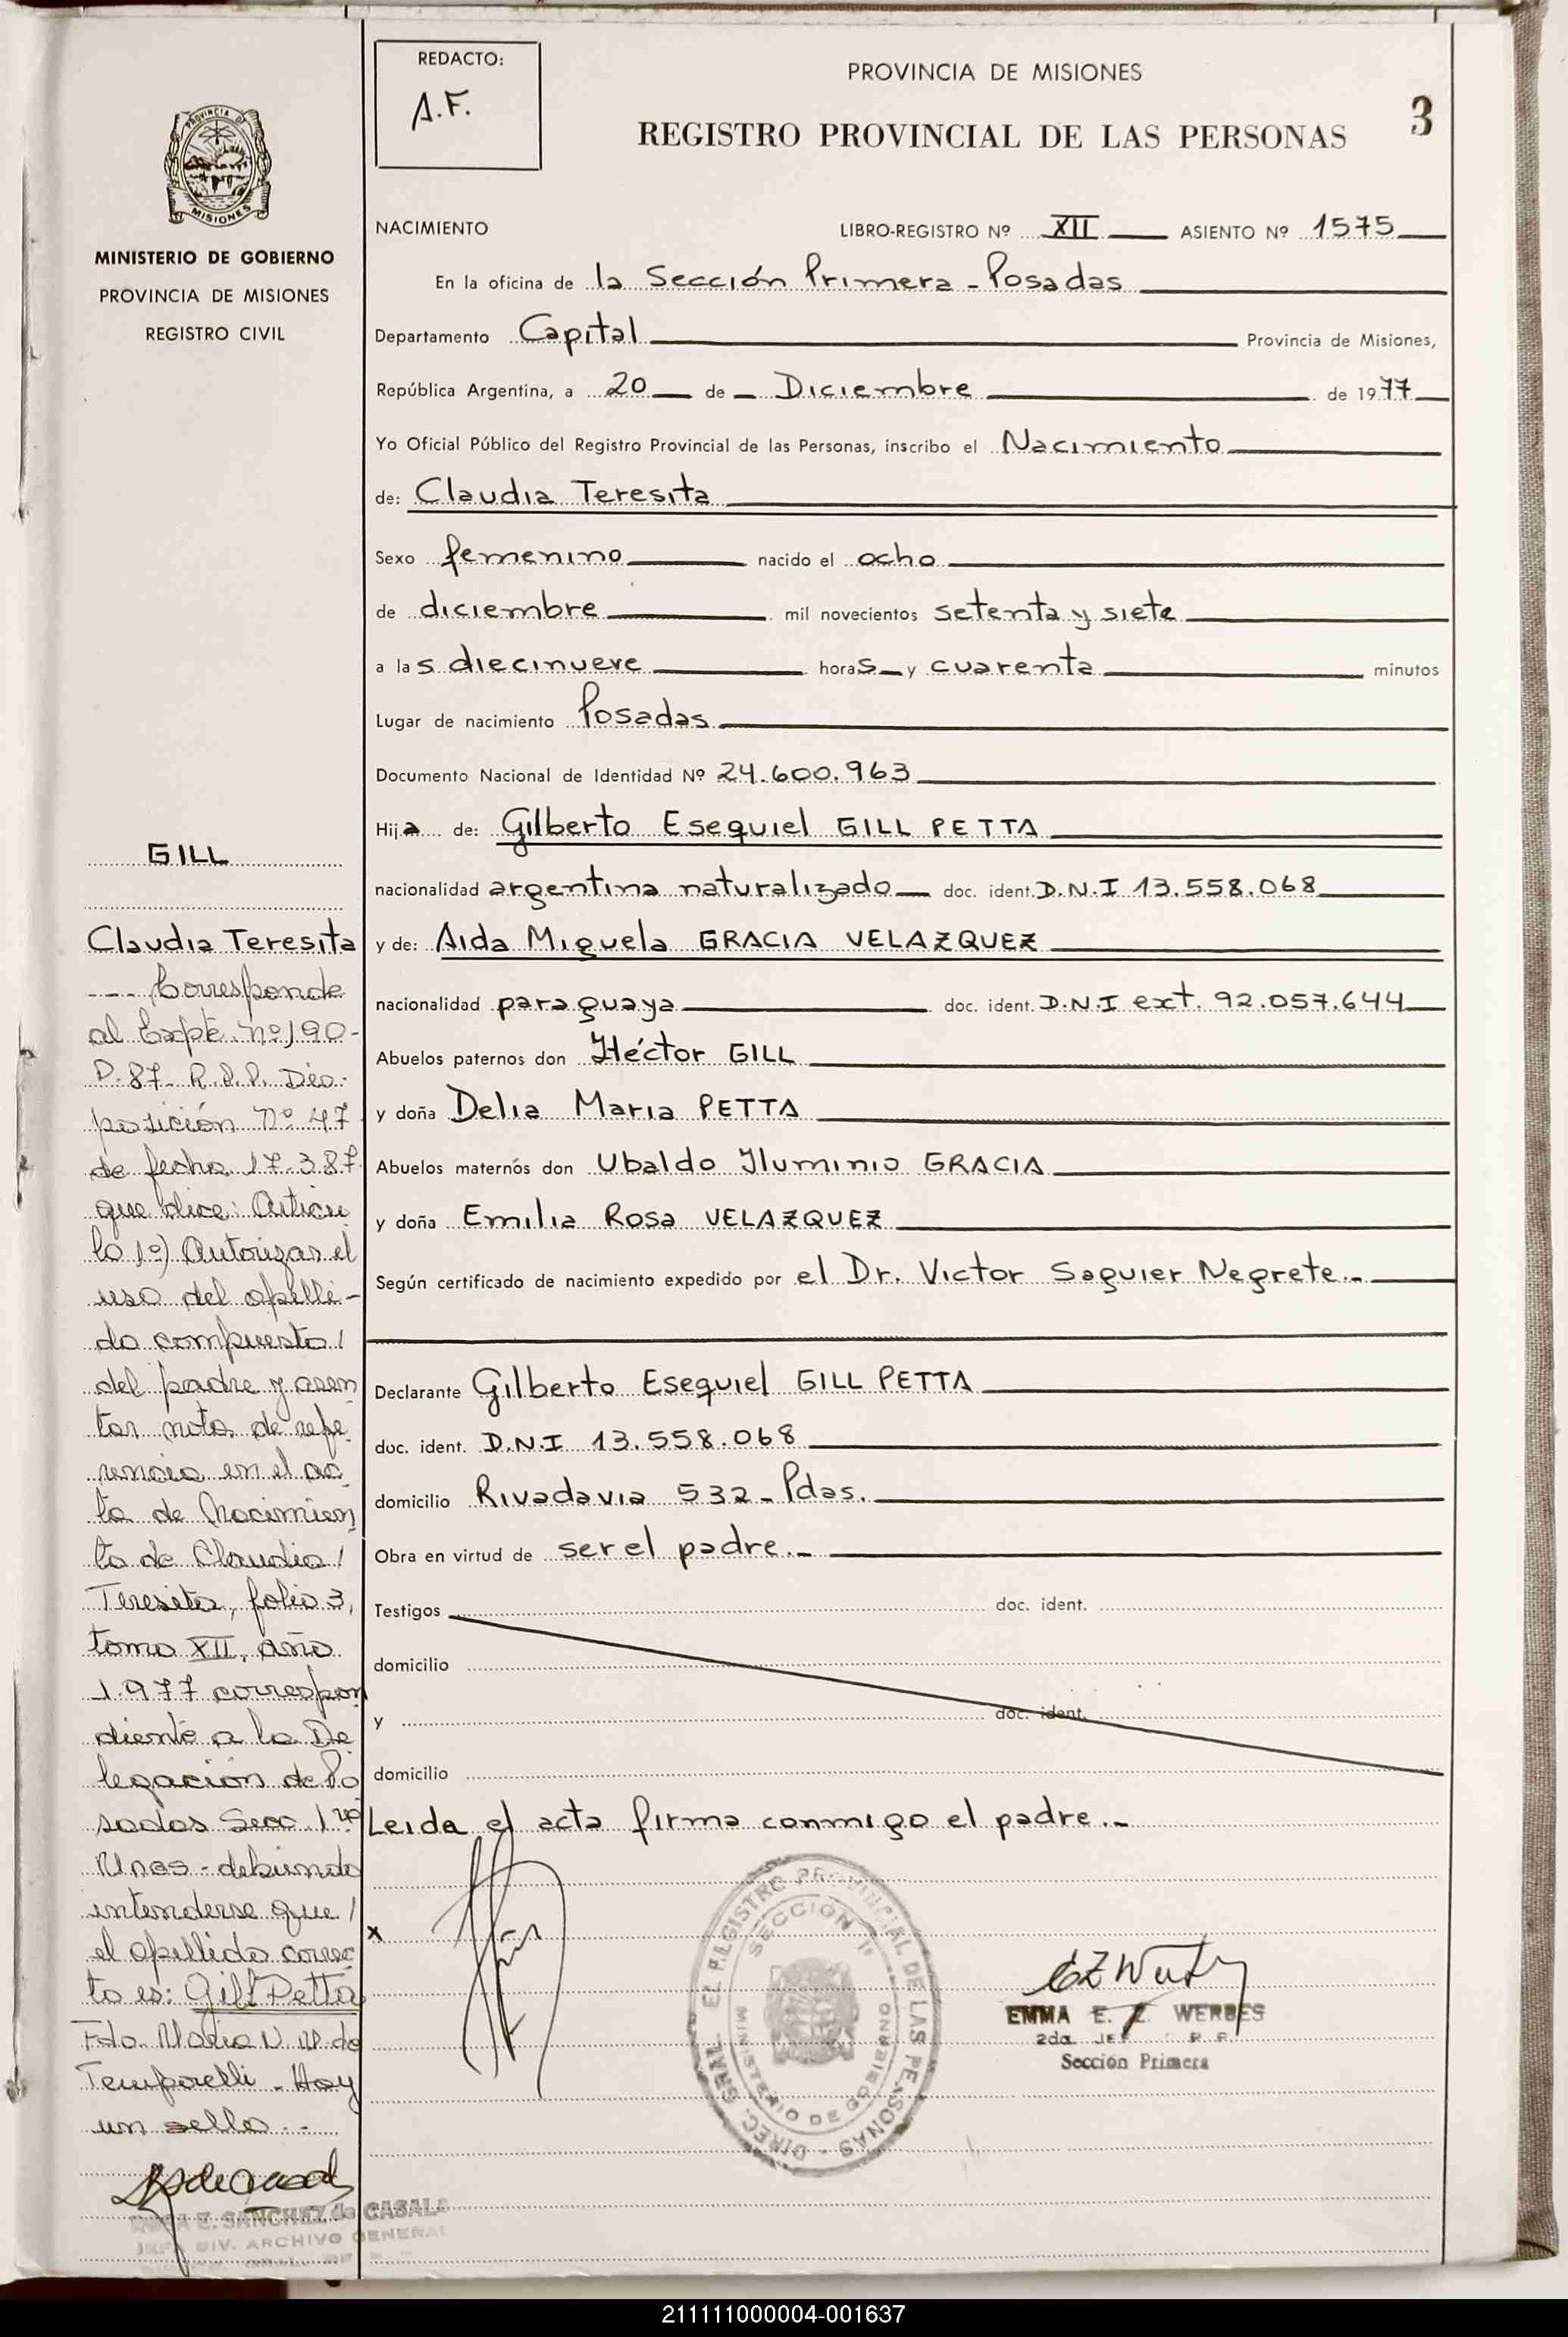 REDACTO:
A.F.
PROVINCIA DE MISIONES
REGISTRO PROVINCIAL DE LAS PERSONAS
3
PROVINCIA DE
MISIONES
MINISTERIO DE GOBIERNO
PROVINCIA DE MISIONES
REGISTRO CIVIL
NACIMIENTO LIBRO-REGISTRO Nº XII ASIENTO Nº 1575
En la oficina de la Sección Primera - Posadas
Departamento Capital Provincia de Misiones,
República Argentina, a 20 de Diciembre de 1977
Yo Oficial Público del Registro Provincial de las Personas, inscribo el Nacimiento
de: Claudia Teresita
Sexo femenino nacido el ocho
de diciembre mil novecientos setenta y siete
a las diecinueve horas y cuarenta minutos
Lugar de nacimiento Posadas
Documento Nacional de Identidad Nº 24.600.963
Hija de: Gilberto Esequiel GILL PETTA
nacionalidad argentina naturalizado doc. ident. D.N.I 13.558.068
y de: Aida Miguela GRACIA VELAZQUEZ
nacionalidad paraguaya doc. ident. D.N.I ext. 92.057.644
Abuelos paternos don Héctor GILL
y doña Delia Maria PETTA
Abuelos maternos don Ubaldo Iluminio GRACIA
y doña Emilia Rosa VELAZQUEZ
Según certificado de nacimiento expedido por el Dr. Victor Saguier Negrete.-
Declarante Gilberto Esequiel GILL PETTA
doc. ident. D.N.I 13.558.068
domicilio Rivadavia 532 - Pdas.
Obra en virtud de ser el padre.-
Testigos doc. ident.
domicilio
y doc. ident.
domicilio
Leida el acta firma conmigo el padre.-
x
DIREC. GRAL. EL REGISTRO PROVINCIAL DE LAS PERSONAS
SECCION 1ª
MINISTERIO DE GOBIERNO
EMMA E. Z. WERBES
2da JEF R. P.
Sección Primera
GILL
Claudia Teresita
--- Corresponde
al Expte. Nº 190-
P-87- R.P.P. Dis-
posición Nº 47
de fecha 17-3-87
que dice: Artícu
lo 1º) Autorizar el
uso del apelli-
do compuesto/
del padre y asen
tar nota de refe
rencia en el ac
ta de Nacimien
to de Claudia/
Teresita, folio 3,
tomo XII, año
1.977 correspon
diente a la De
legación de Po
sadas Secc. 1ra
Mnes - debiendo
entenderse que/
el apellido correc
to es: Gill Petta
Fdo. Maria N. M. de
Temporelli - Hay
un sello.-
ROSA E. SANCHEZ de CASALA
JEFA DIV. ARCHIVO GENERAL
211111000004-001637